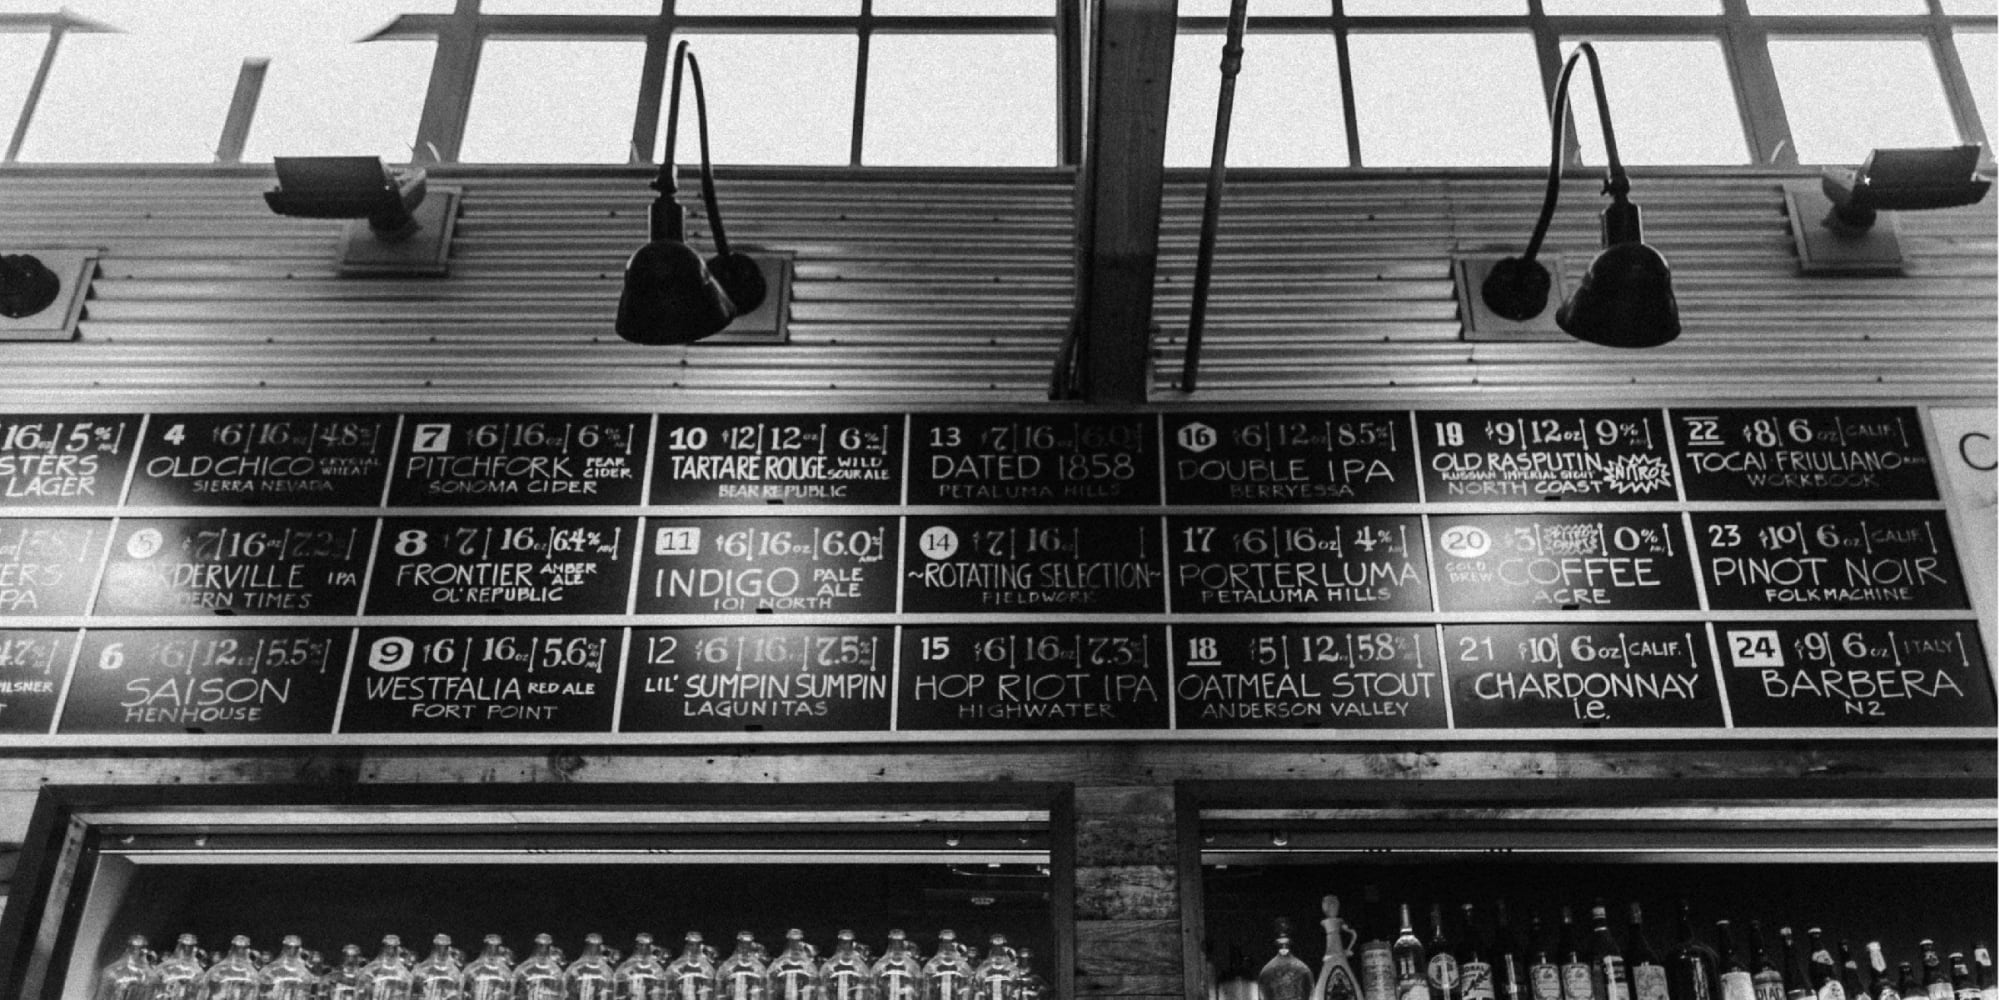 16oz 5%
STERS
LAGER
4 $6 16oz 4.8%
OLD CHICO CRYSTAL WHEAT
SIERRA NEVADA
7 $6 16oz 6% ABV
PITCHFORK PEAR CIDER
SONOMA CIDER
10 $12 12oz 6% ABV
TARTARE ROUGE WILD SOUR ALE
BEAR REPUBLIC
13 $7 16oz 6.0
DATED 1858
PETALUMA HILLS
16 $6 12oz 8.5%
DOUBLE IPA
BERRYESSA
19 $9 12oz 9% ABV
OLD RASPUTIN
RUSSIAN IMPERIAL STOUT NITRO
NORTH COAST
22 $8 6oz CALIF.
TOCAI FRIULIANO
WORKBOOK
ERS
PA
5 $7 16oz 7.2
DERVILLE IPA
DERN TIMES
8 $7 16oz 6.4% ABV
FRONTIER AMBER ALE
OL' REPUBLIC
11 $6 16oz 6.0% ABV
INDIGO PALE ALE
101 NORTH
14 $7 16oz
~ROTATING SELECTION~
FIELDWORK
17 $6 16oz 4% ABV
PORTERLUMA
PETALUMA HILLS
20 $3 0% ABV
COLD BREW COFFEE
ACRE
23 $10 6oz CALIF.
PINOT NOIR
FOLK MACHINE
4.7%
PILSNER
T
6 $6 12oz 5.5%
SAISON
HENHOUSE
9 $6 16oz 5.6% ABV
WESTFALIA RED ALE
FORT POINT
12 $6 16oz 7.5%
LIL' SUMPIN SUMPIN
LAGUNITAS
15 $6 16oz 7.3%
HOP RIOT IPA
HIGHWATER
18 $5 12oz 5.8%
OATMEAL STOUT
ANDERSON VALLEY
21 $10 6oz CALIF.
CHARDONNAY
i.e.
24 $9 6oz ITALY
BARBERA
N2
C